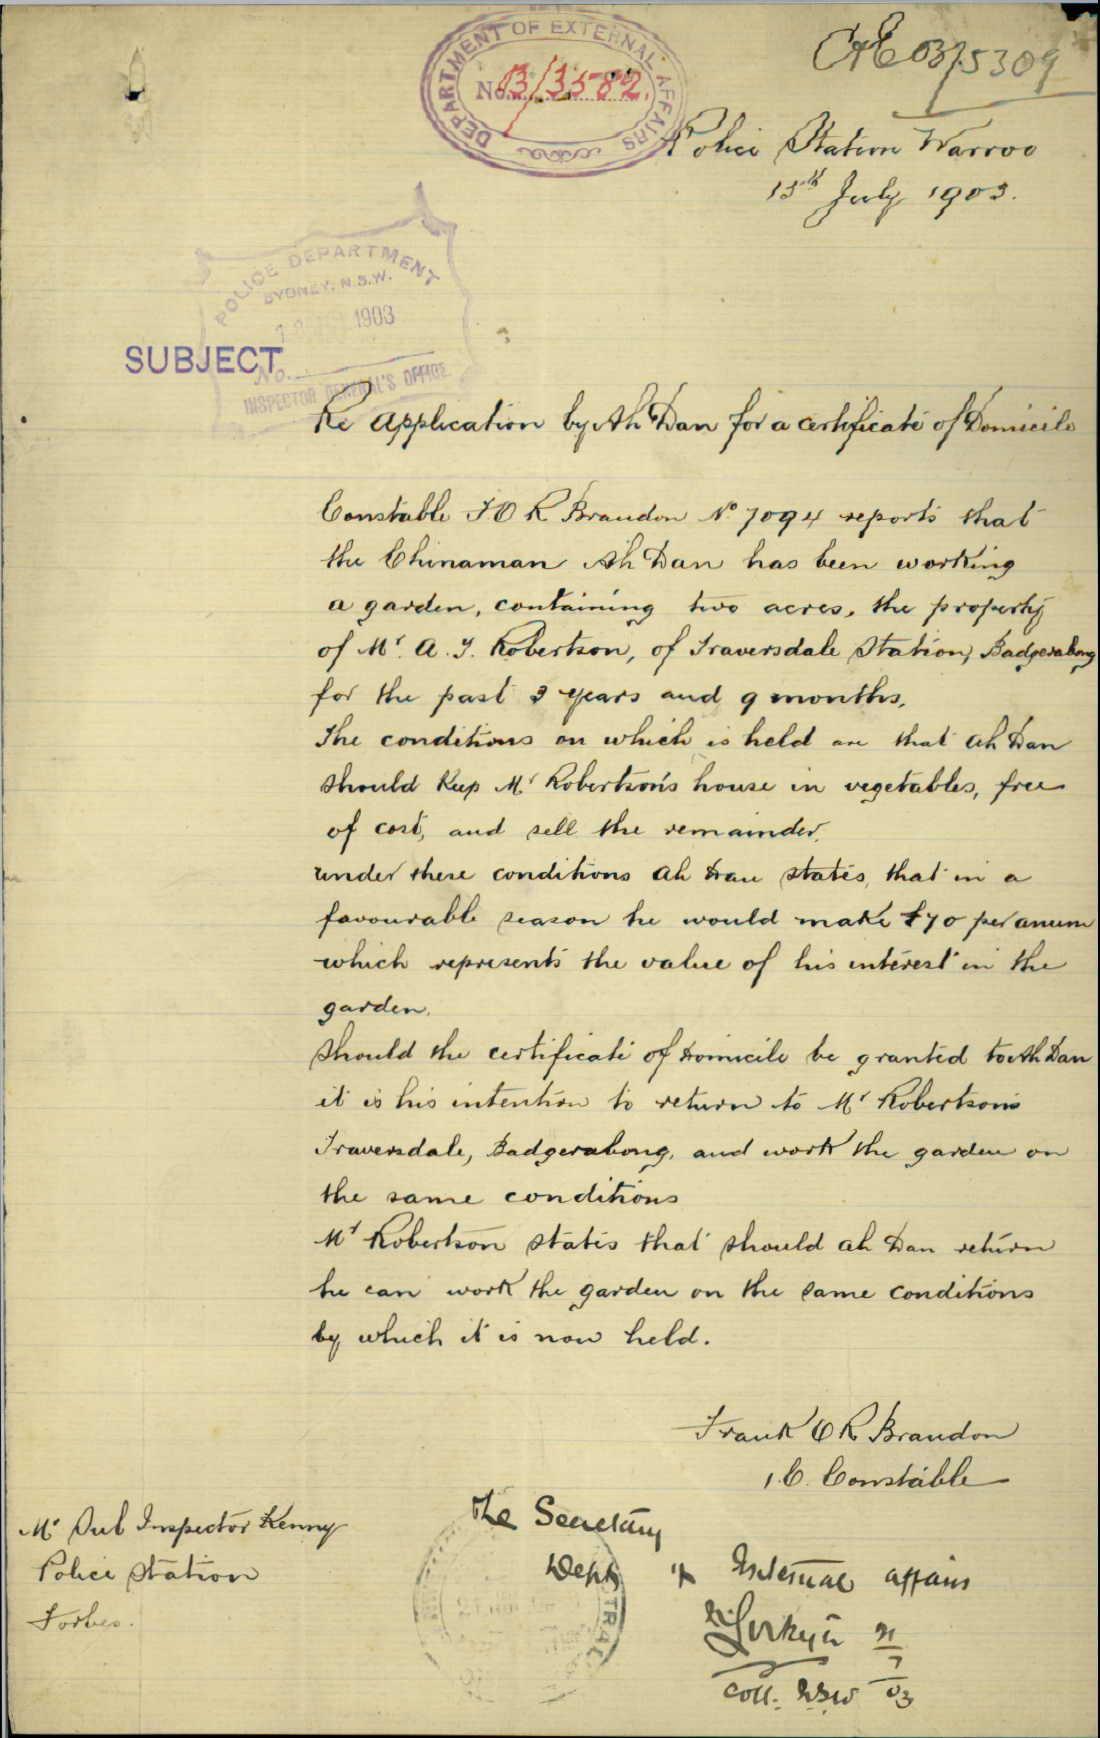 DEPARTMENT OF EXTERNAL AFFAIRS
No. 03/3582.
C&E 03/5309
Police Station Warroo
15th July 1903.
POLICE DEPARTMENT
SYDNEY. N.S.W.
1903
No.
INSPECTOR GENERAL'S OFFICE
SUBJECT
Re Application by Ah Dan for a certificate of Domicile
Constable F O R Brandon No 7094 reports that
the Chinaman Ah Dan has been working
a garden, containing two acres, the property
of Mr. A. J. Robertson, of Traversdale Station, Badgerabong
for the past 3 years and 9 months.
The conditions on which is held are that Ah Dan
should keep Mr Robertson's house in vegetables, free
of cost, and sell the remainder.
under these conditions Ah Dan states, that in a
favourable season he would make £70 per anum
which represents the value of his interest in the
garden.
Should the certificate of Domicile be granted to Ah Dan
it is his intention to return to Mr Robertson's
Traversdale, Badgerabong, and work the garden on
the same conditions
Mr Robertson states that should Ah Dan return
he can work the garden on the same conditions
by which it is now held.
Frank O R Brandon
1.C. Constable
Mr Sub Inspector Kenny
Police Station
Forbes.
The Secretary
Dept of External affairs
Coll. NSW
7
03